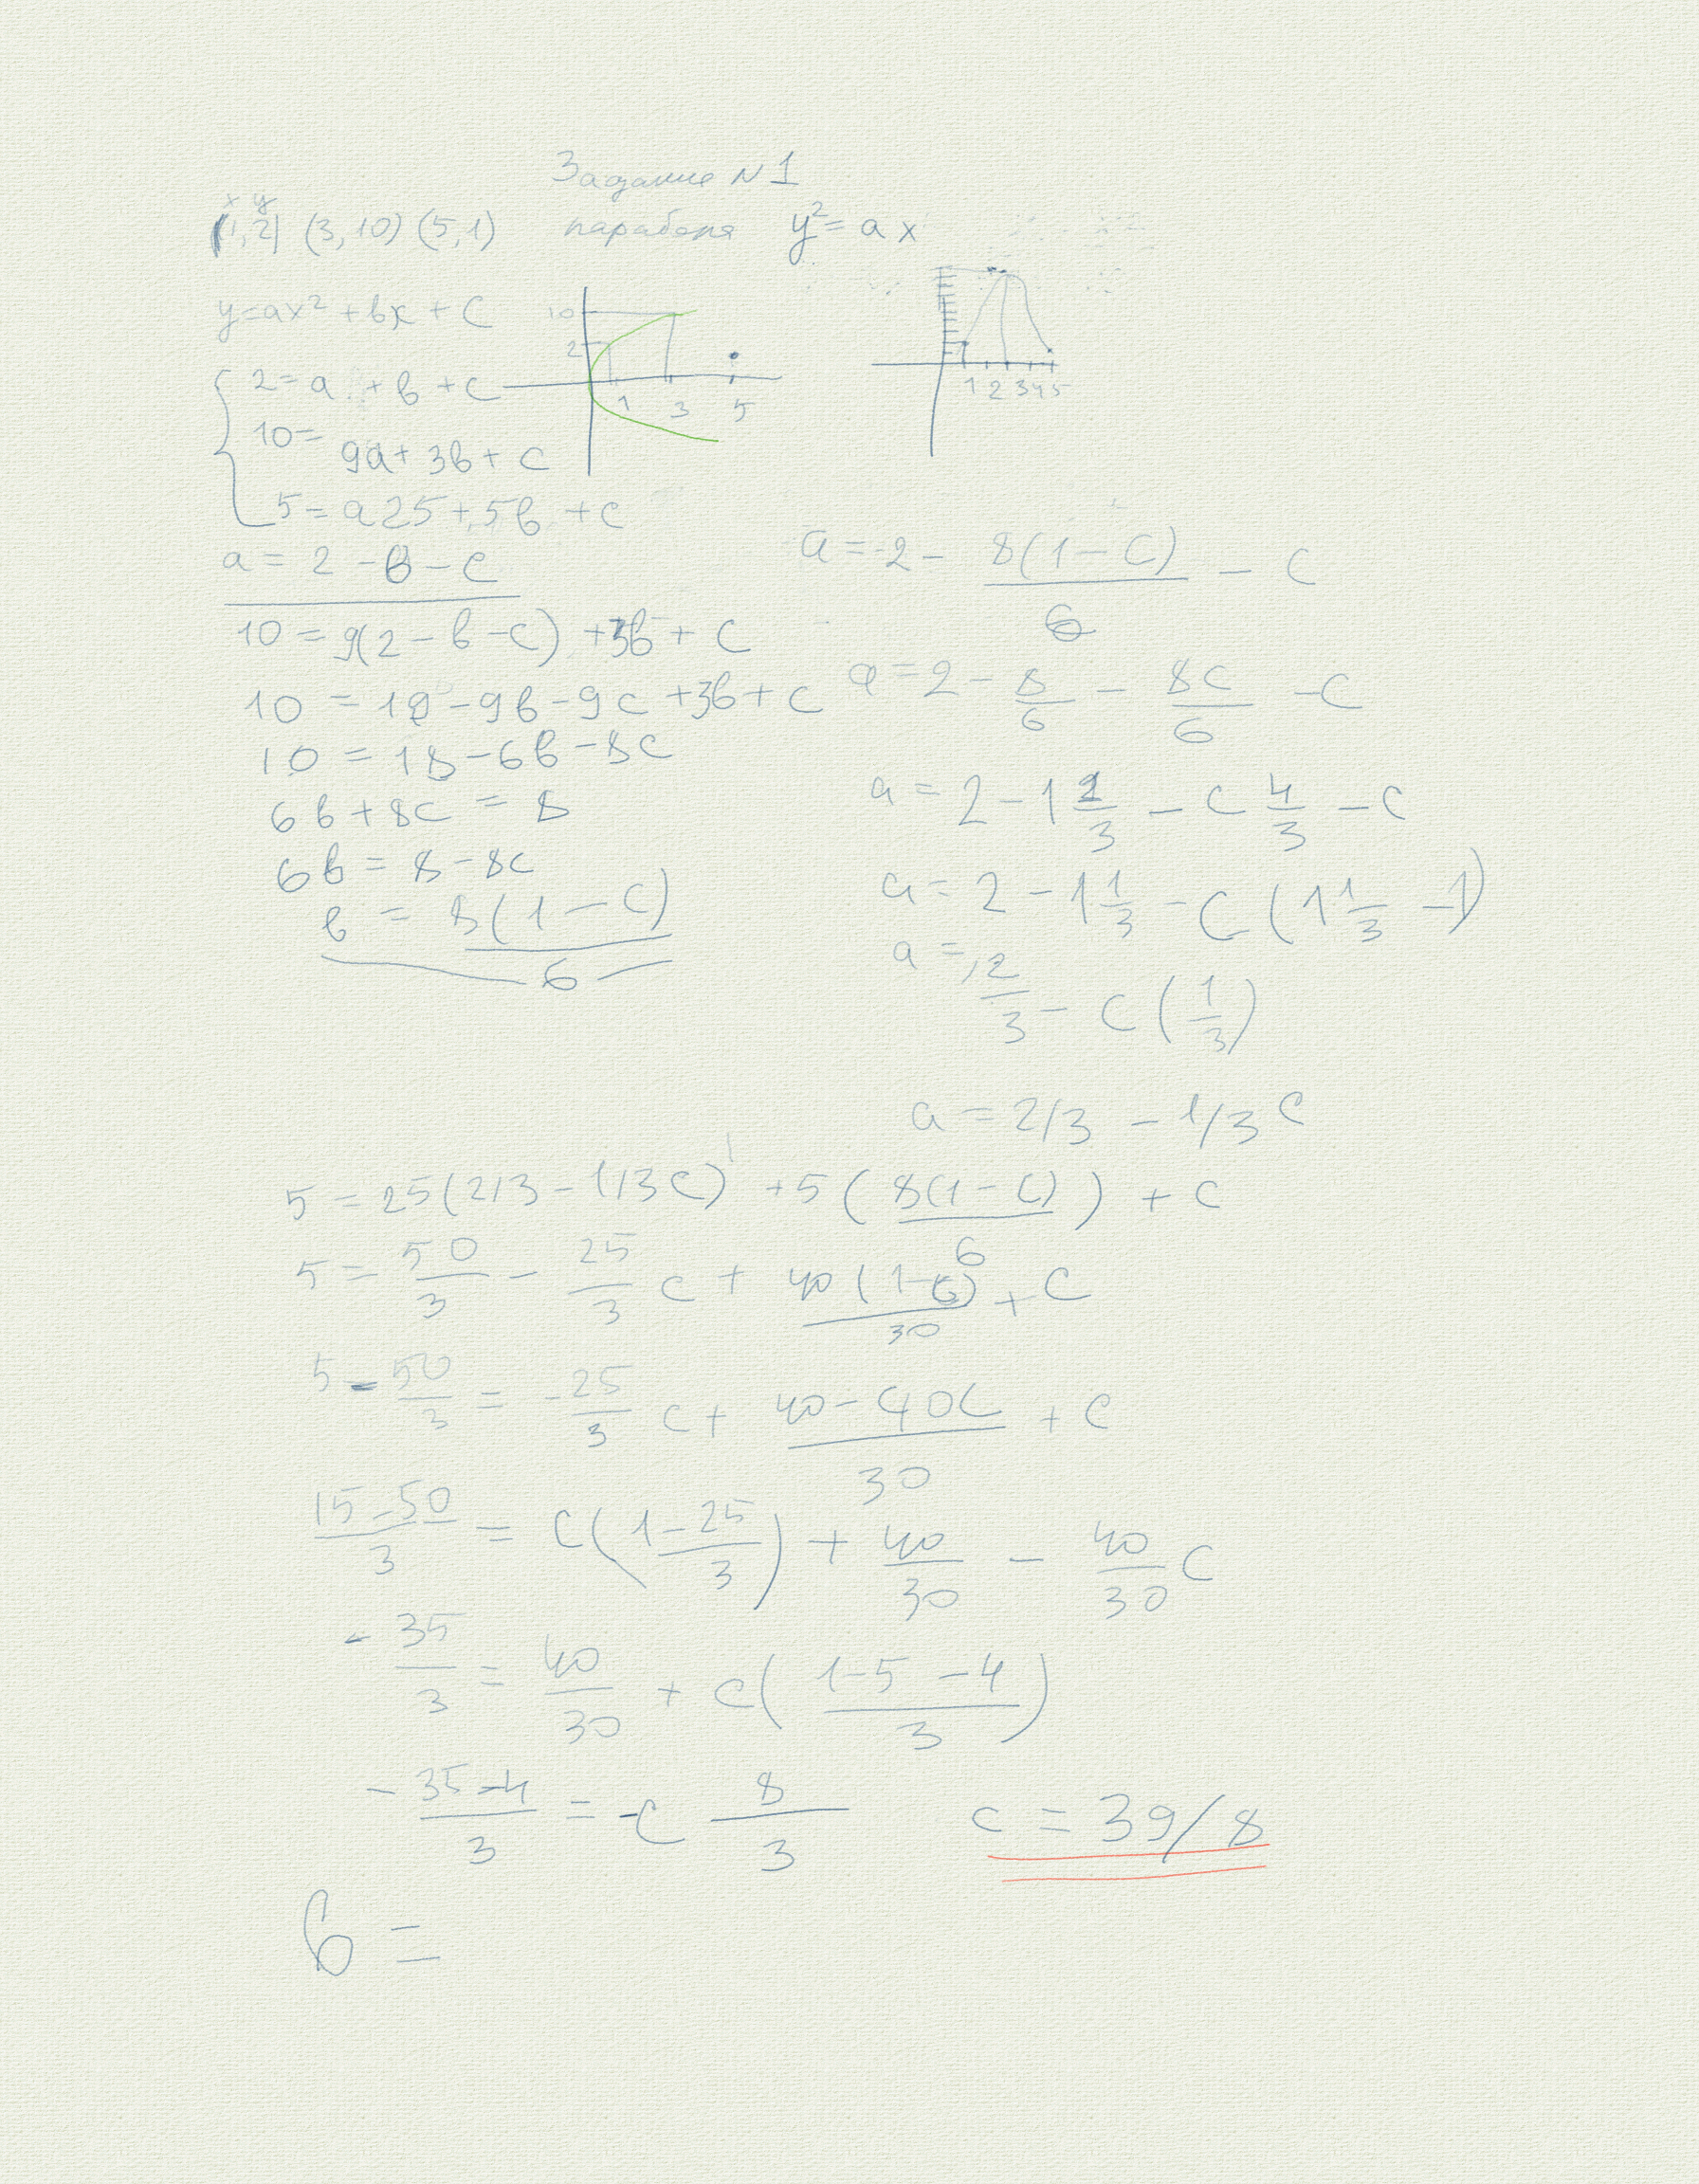 Задание N1
x y
(1,2) (3,10) (5,1) парабола y²= ax
y=ax²+bx+c
10
2
1 3 5
1
1 2 3 4 5
2=a+b+c
10=
9a+3b+c
5=a25+5b+c
a=2-b-c
10=9(2-b-c)+3b+c
10=18-9b-9c+3b+c
10=18-6b-8c
6b+8c=8
6b=8-8c
b=8(1-c)/6
a=2-8(1-c)/6-c
a=2-8/6-8c/6-c
a=2-1 1/3-c 4/3-c
a=2-1 1/3-c(1 1/3-1)
a=2/3-c(1/3)
a=2/3-1/3c
5=25(2/3-1/3c)+5(8(1-c)/6)+c
5=50/3-25/3c+40(1-c)/30+c
5-50/3=-25/3c+40-40c/30+c
15-50/3=c(1-25/3)+40/30-40/30c
-35/3=40/30+c(1-5-4/3)
-35-4/3=-c 8/3 c=39/8
b=